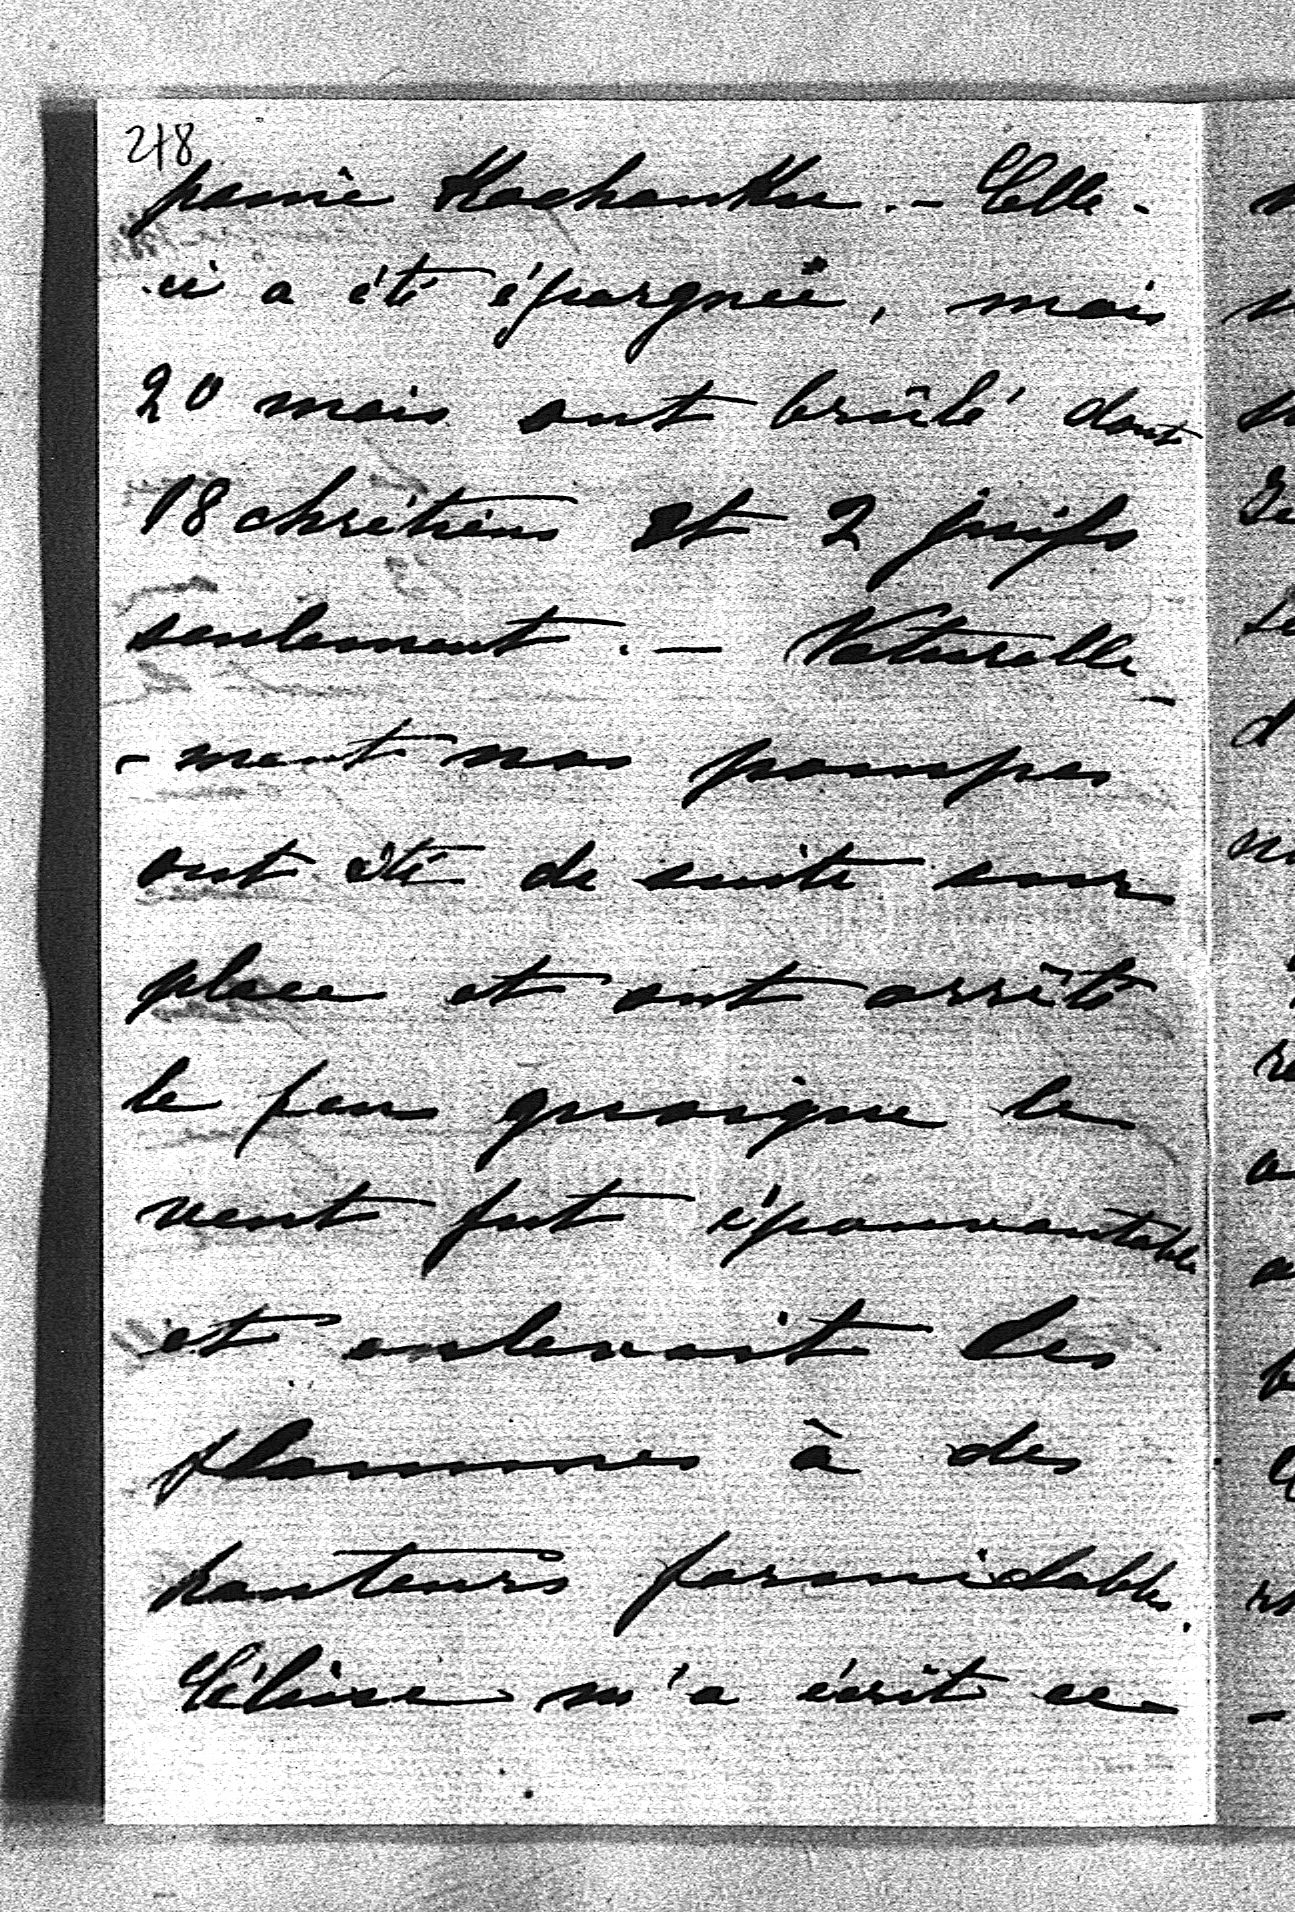 218
panie Kochanku. - Celle-
ci a été épargnée, mais
20 mais ont brûlé dont
18 chrétiens et 2 juifs
seulement. - Naturelle-
- ment nos pompes
ont été de suite sur
place et ont arrêté
le feu quoique le
vent fut épouvantable
et enlevait les
flammes à des
hauteurs formidables.
Céline m'a écrit ce